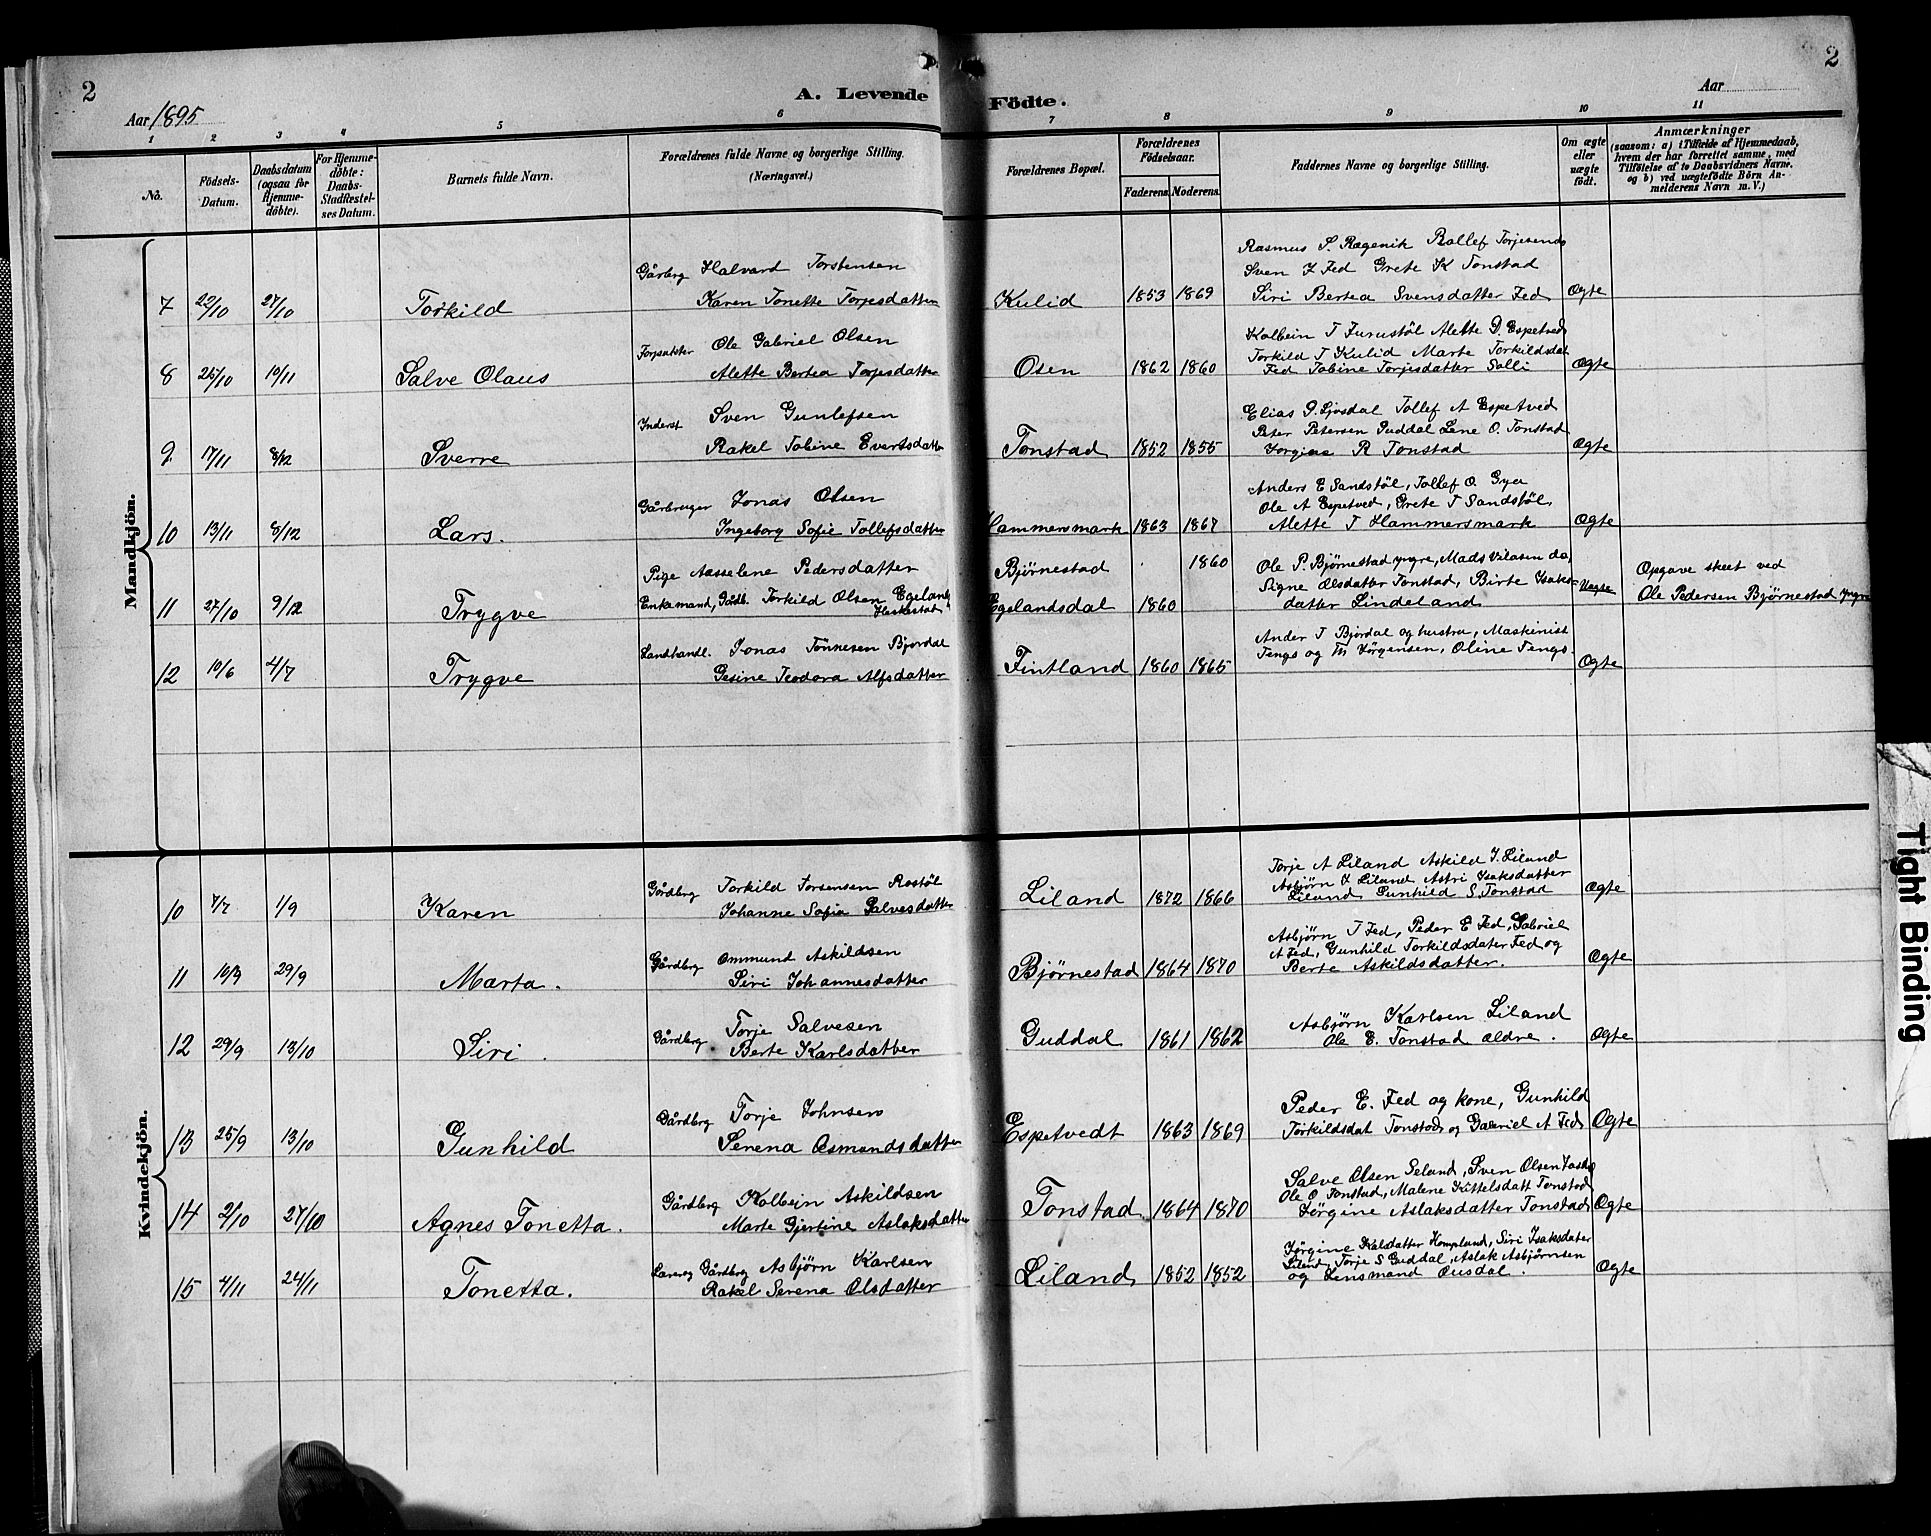 2
A. Levende Födte.
2
Aar 1895
Aar
1 2 3 4 5 6 7 8 9 10 11
No.
Födsels-Datum.
Daabsdatum (ogsaa for Hjemmedöbte).
For Hjemmedöbte: Daabs-Stadfestelses Datum.
Barnets fulde Navn.
Forældrenes fulde Navne og borgerlige Stilling. (Næringsvei.)
Forældrenes Bopæl.
Forældrenes Födselsaar.
Faderens. Moderens.
Faddernes Navne og borgerlige Stilling.
Om ægte eller uægte födt.
Anmærkninger
(saasom: a) i Tilfælde af Hjemmedaab, hvem der har forrettet samme, med Tilföielse af to Daabsvidners Navne. og b) ved uægtefödte Börn Anmelderens Navn m. V.)
Mandkjön.
Rasmus S. Regenik Rollef Torjesends
Gårbrg Halvard Torstensen
Sven T Fed Grete K Tonstad
7 22/10 27/10 Torkild Karen Tonette Torjesdatter Kulid 1853 1869 Siri Bertea Svensdatter Fed Ægte
Kolbein T Furustöl Alette D. Espetved
Ole Gabriel Olsen
Torkild T Kulid Marte Torkildsdat
8 25/10 10/11 Salve Olaus Alette Bertea Torjesdatter Osen 1862 1860 Fed Tobine Torjesdatter Solli Ægte
Elias P. Ljosdal Tollef A Espetved
Inderst Sven Gunlefsen
Peter Petersen Guddal Lene O. Tonstad
9 17/11 8/12 Sverre Rakel Tobine Evertsdatter Tonstad 1852 1855 Jorgine R Tonstad Ægte
Anders E Sandstöl, Tollef O Gya
Gårbruger Jonas Olsen
Ole A Espetved, Grete T Sandstöl,
10 13/11 8/12 Lars. Ingeborg Sofie Tollefsdatter Hammersmark 1863 1867 Alette T Hammersmark Ægte
Pige Aasselene Pedersdatter Bjørnestad 1860 Ole P. Bjørnestad yngre, Mads Vilasen do, Opgave skeet ved
Signe Olsdatter Tonstad, Birte Isaks=
11 27/10 9/12 Trygve Enkemand, Gådb. Torkild Olsen Egeland Egelandsdal 1860 datter Lindeland Uægte Ole Pedersen Bjørnestad yngre
Ander T Bjordal og hustru, Maskinist
Landhandl. Jonas Tönnesen Bjordal
Tengs og Th Jörgensen, Oline Tengs.
12 10/6 4/7 Trygve Gesine Teodora Alfsdatter Fintland 1860 1865 Ægte
Kvindekjön.
Torje A Liland Askild J. Liland
Gårdbrg Torkild Torsensen Rostöl
Asbjörn K Liland Astri Isaksdatter
10 7/7 1/9 Karen Johanne Sofia Salvesdatter Liland 1872 1866 Liland Gunhild S. Tonstad Ægte
Asbjörn T Fed, Peder E Fed, Gabriel
Gårdbrg Ommund Askildsen
A Fed, Gunhild Torkildsdater Fed og
11 29/9 Marta. Siri Johannesdatter Bjørnestad 1864 1870 Berte Askildsdatter. Ægte
Gårdbrg Torje Salvesen
Asbjørn Karlsen Liland
12 29/9 13/10 Siri. Berte Karlsdatter Guddal 1861 1862 Ole E. Tonstad ældre. Ægte
Gårdbrg Torje Johnsen
Peder E. Fed og kone, Gunhild
13 25/9 13/10 Gunhild Serena Osmundsdatter Espetvedt 1863 1869 Torkildsdat Tonstad og Gabriel A Fed Ægte
Salve Olsen Seland, Sven Olsen
Gårdbrg Kolbein Askildsen
Ole O Tonstad, Malene Kittelsdatt Tonstad
14 2/10 27/10 Agnes Tonetta. Marte Gjertine Aslaksdatter Tonstad 1864 1870 Jörgine Aslaksdatter Tonstad Ægte
Jörgine Kalsdatter Hompland, Siri Isaksdater
Gårdbrg Asbjörn Karlsen
Liland, Torje S Guddal, Aslak Asbjørnsen
15 4/11 24/11 Tonetta. Rakel Serena Olsdatter Liland 1852 1852 og Lensmand Ousdal. Ægte
Tight Binding